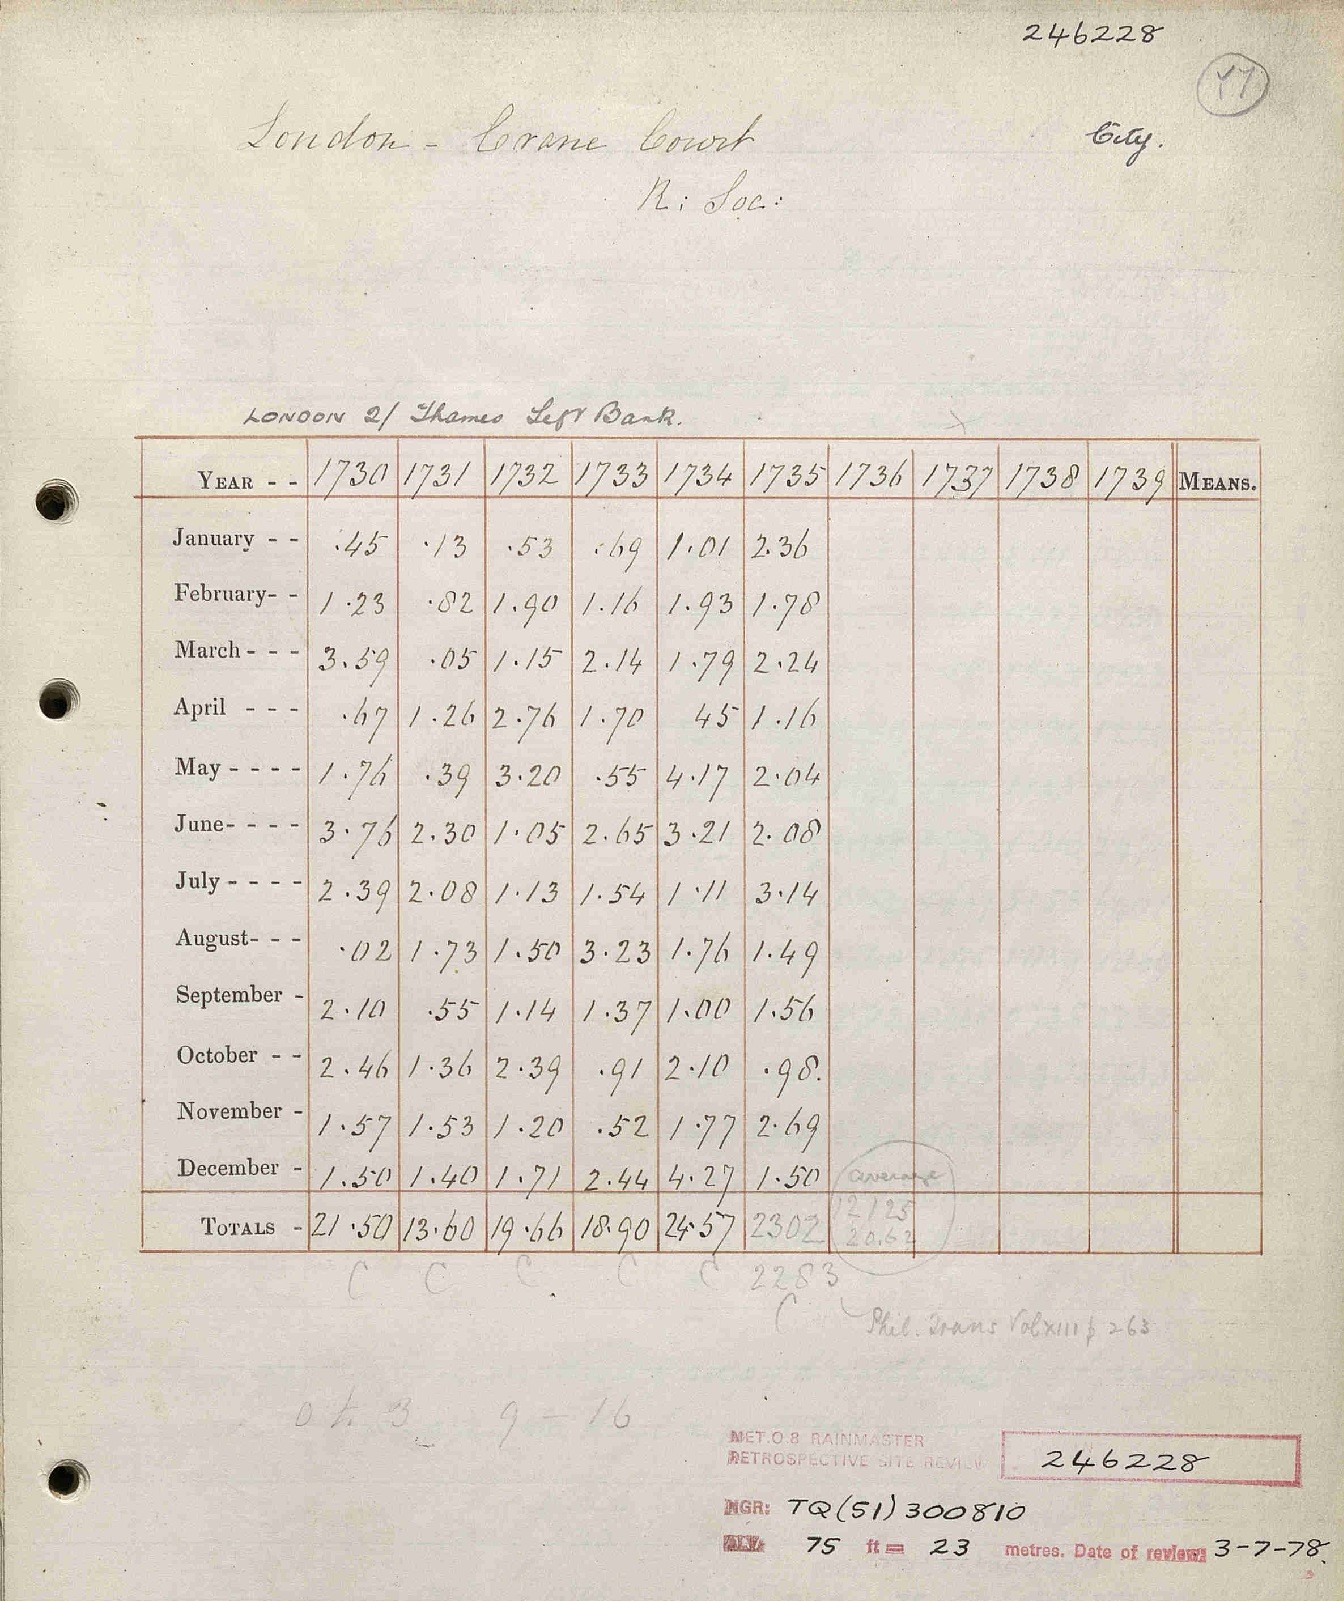 246228
London - Crane Court
City.
R: Soc:
LONDON 2/ Thames Left Bank.
YEAR - - 1730 1731 1732 1733 1734 1735 1736 1737 1738 1739 MEANS.
January - - .45 .13 .53 .69 1.01 2.36
February- - 1.23 .82 1.90 1.16 1.93 1.78
March - - - 3.59 .05 1.15 2.14 1.79 2.24
April - - - .67 1.26 2.76 1.70 45 1.16
May - - - - 1.76 .39 3.20 .55 4.17 2.04
June- - - - 3.76 2.30 1.05 2.65 3.21 2.08
July - - - - 2.39 2.08 1.13 1.54 1.11 3.14
August- - - .02 1.73 1.50 3.23 1.76 1.49
September - 2.10 .55 1.14 1.37 1.00 1.56
October - - 2.46 1.36 2.39 .91 2.10 .98.
November - 1.57 1.53 1.20 .52 1.77 2.69
December - 1.50 1.40 1.71 2.44 4.27 1.50 average
TOTALS - 21.50 13.60 19.66 18.90 24.57 2302
20.62
C C C C C 2283
C
Phil. Trans Vol XIII p 263
9 - 16
MET.O.8 RAINMASTER
RETROSPECTIVE SITE REVIEW 246228
NGR: TQ(51)300810
ALT: 75 ft = 23 metres. Date of review: 3-7-78.